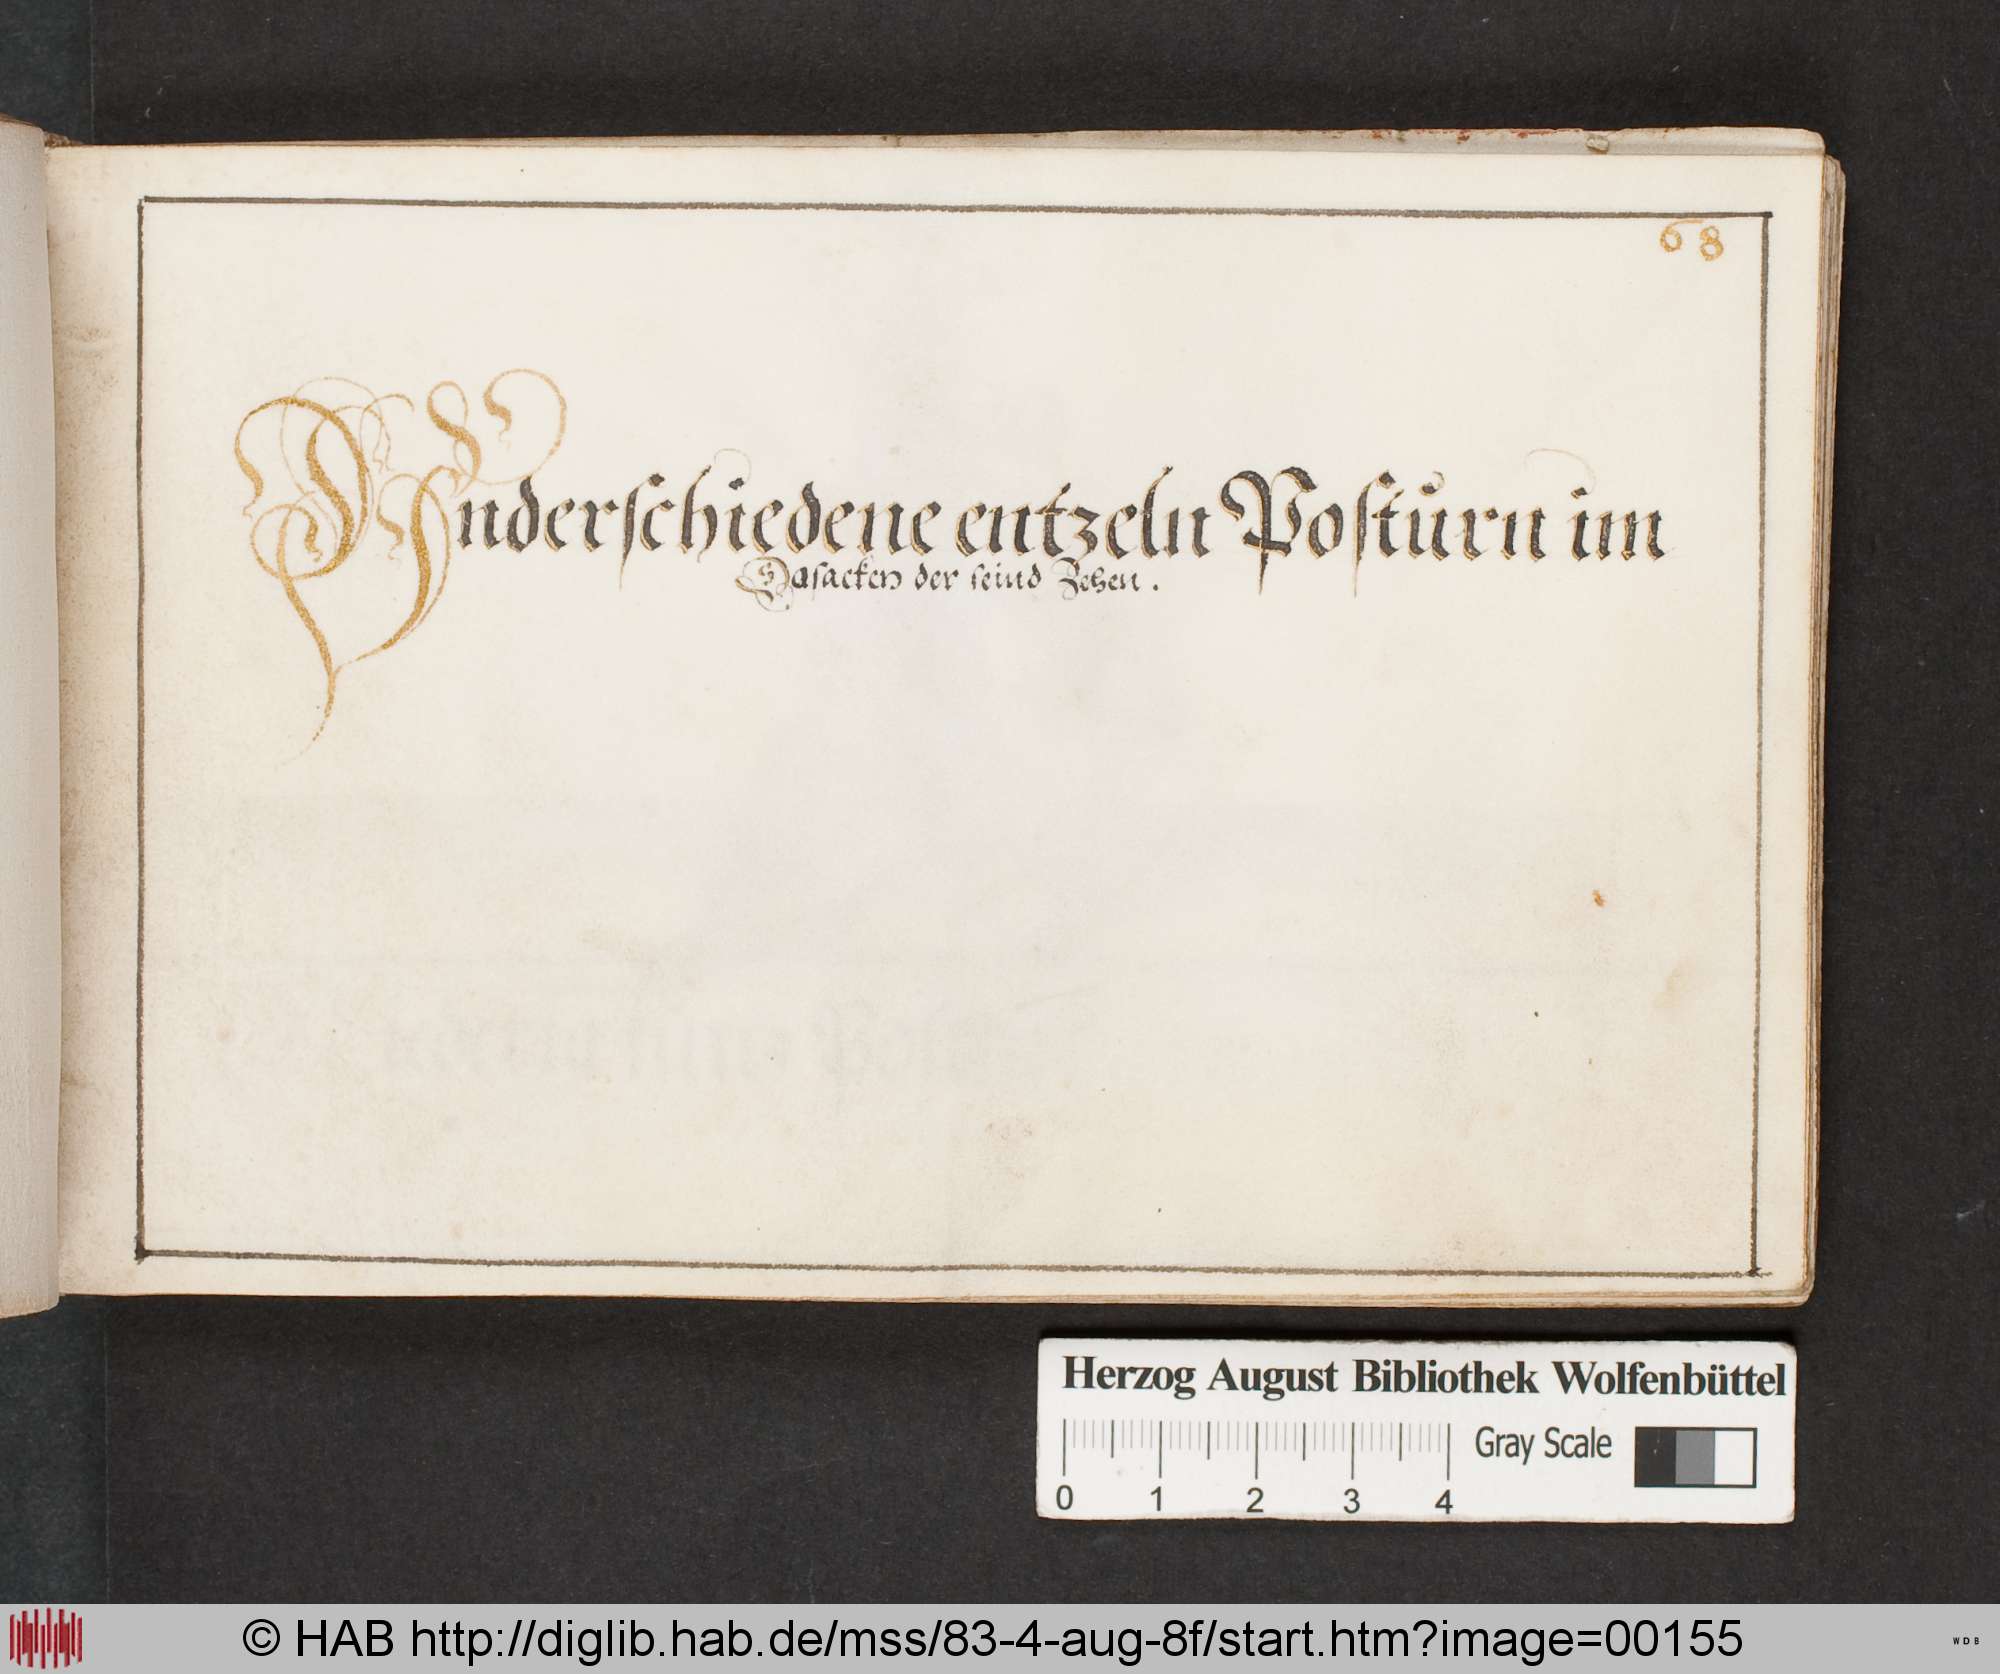 68
Vnderschiedene entzeln Posturn im
Dusacken der seind Zehen .
Herzog August Bibliothek Wolfenbüttel
Gray Scale
0 1 2 3 4
© HAB http://diglib.hab.de/mss/83-4-aug-8f/start.htm?image=00155
WDB